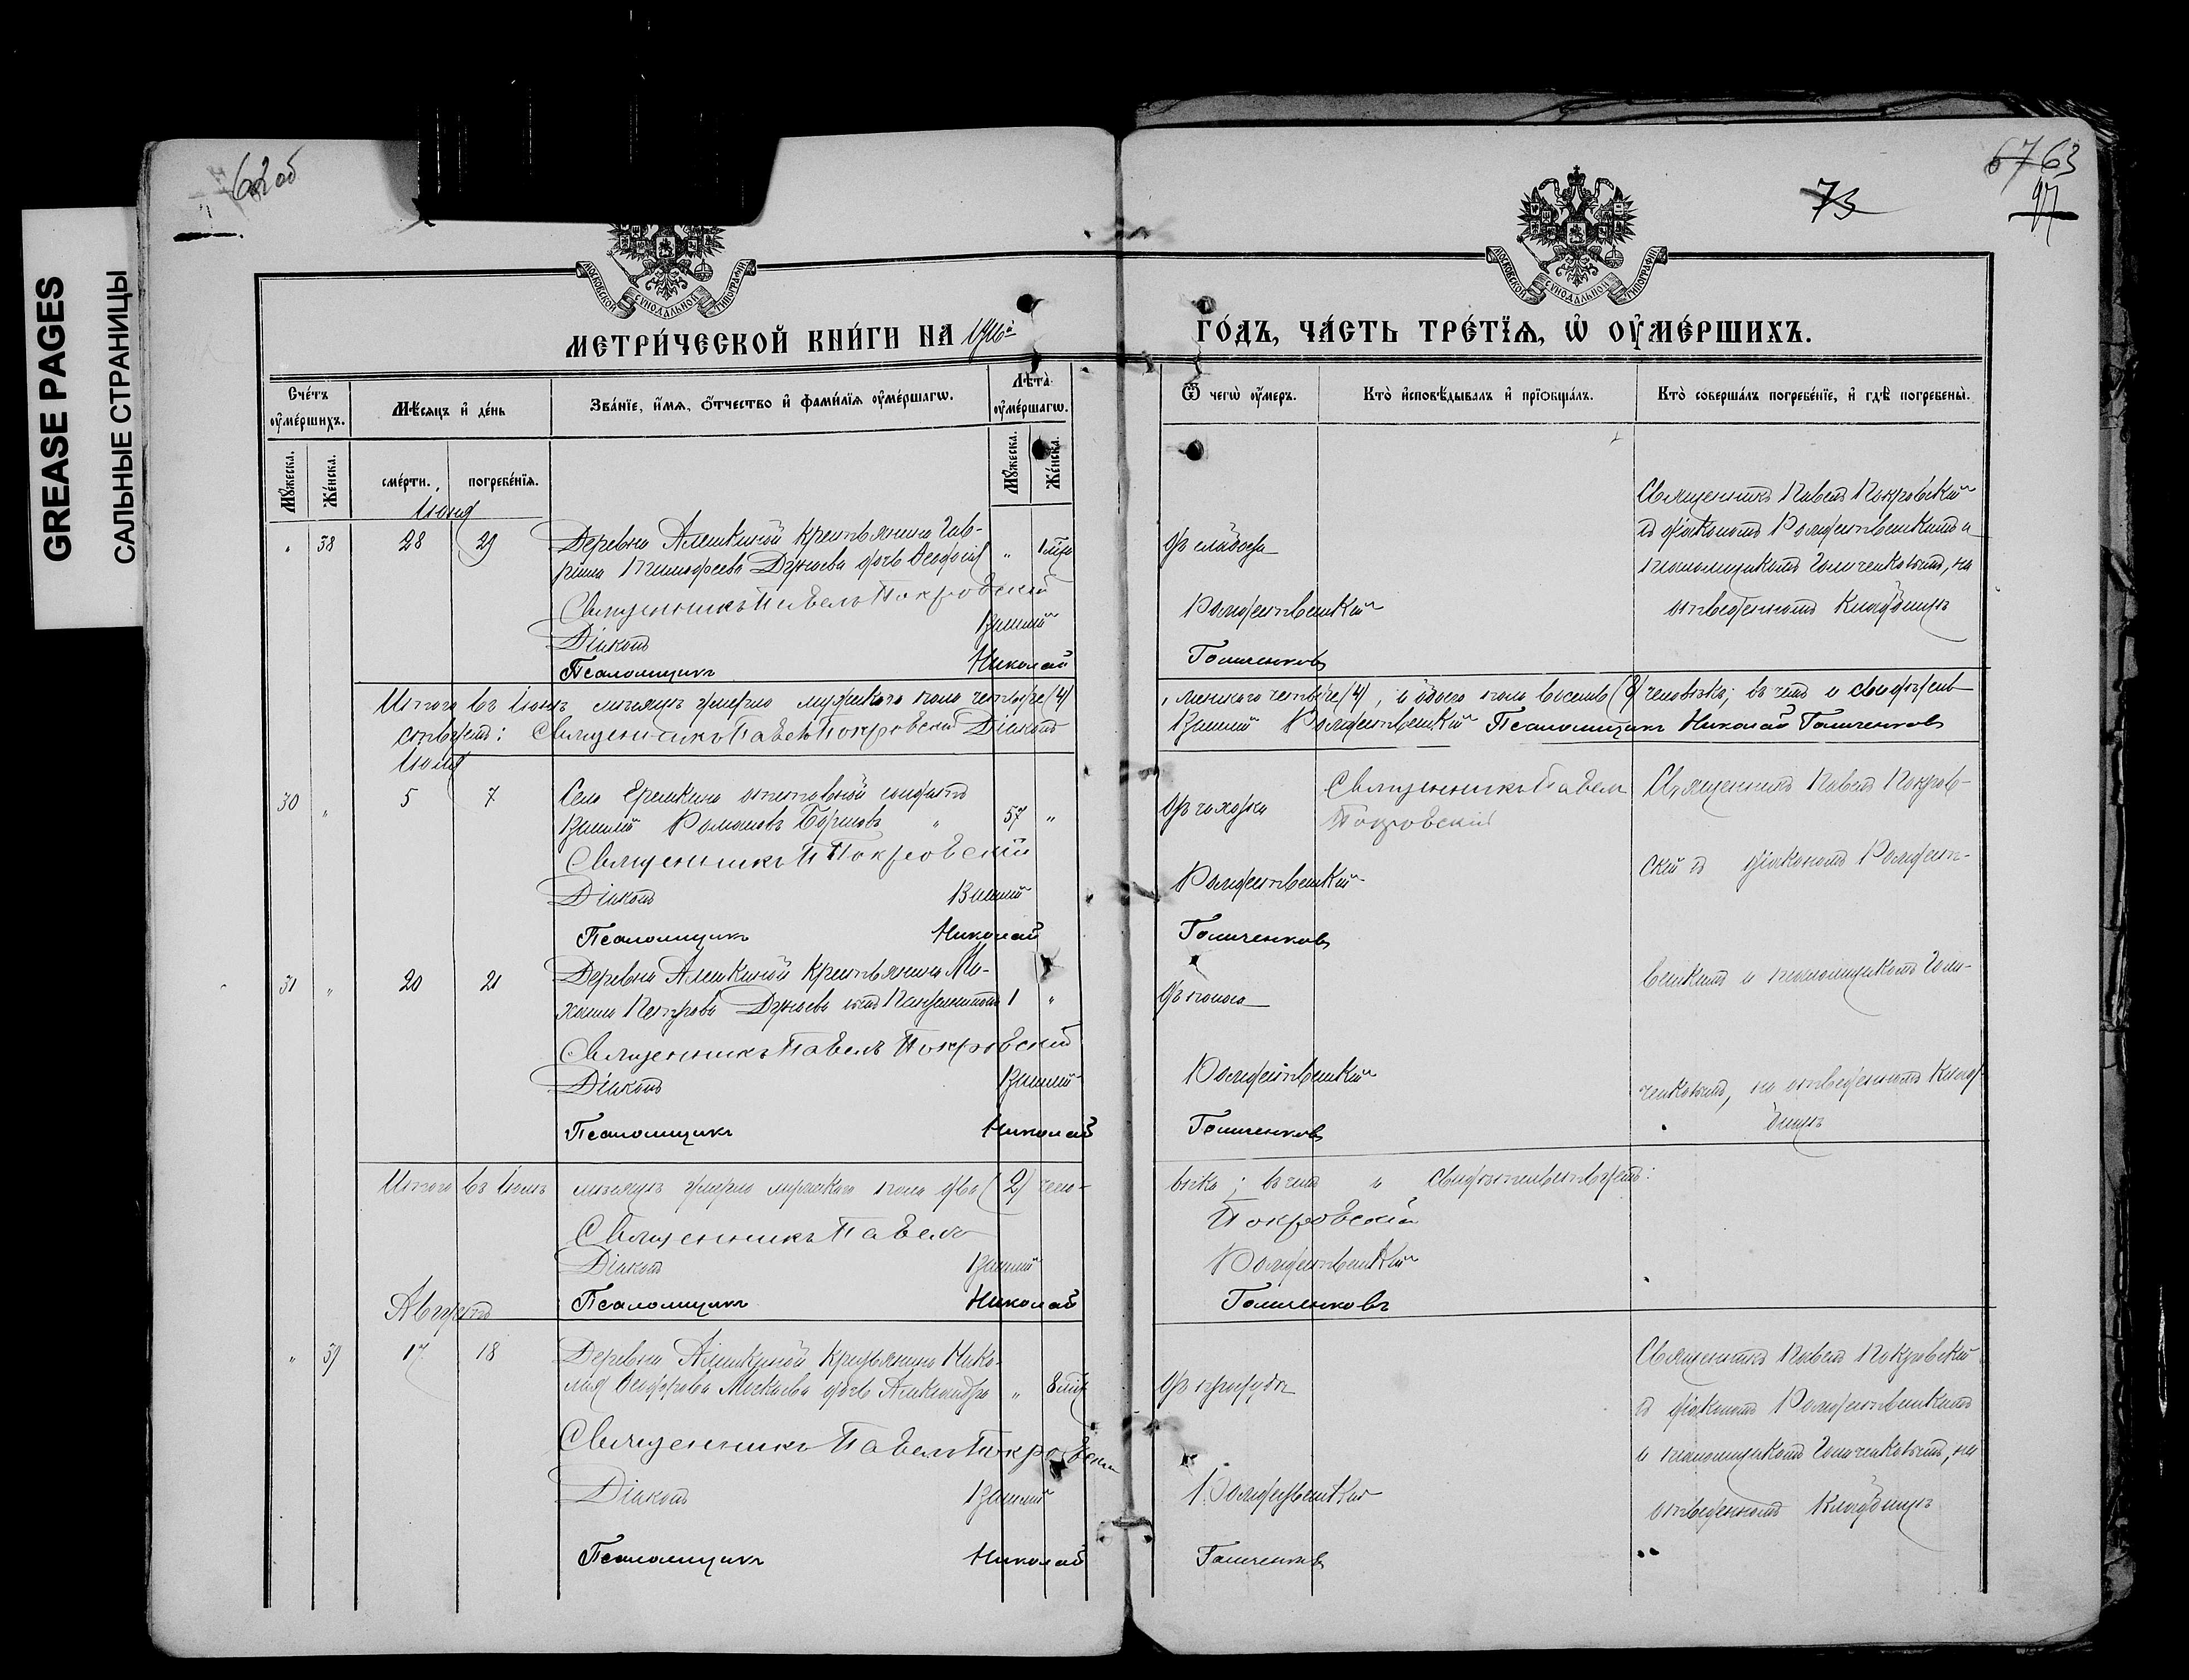 GREASE PAGES
САЛЬНЫЕ СТРАНИЦЫ
62 об
73
67 63
97
МОСКОВСКОЙ СѴНОДАЛЬНОЙ ТИПОГРАФІИ
МОСКОВСКОЙ СѴНОДАЛЬНОЙ ТИПОГРАФІИ
МЕТРИ́ЧЕСКОЙ КНИ́ГИ НА
ГО́ДЪ, ЧА́СТЬ ТРЕ́ТЇѦ, Ѡ҆ ОУ҆МЕ́РШИХЪ.
Сче́тъ оу҆ме́ршихъ.
Мѣ́сяцъ и҆ де́нь
Зва́нїе, и҆́мя, ѻ҆́тчество и҆ фами́лїя оу҆ме́ршагѡ.
Лѣ́та оу҆ме́ршагѡ.
Ѿ чегѡ̀ оу҆́меръ.
Кто̀ и҆сповѣ́дывалъ и҆ прїѡбща́лъ.
Кто̀ соверша́лъ погребе́нїе, и҆ гдѣ̀ погребены̀.
Мꙋ́жеска.
Же́нска.
сме́рти.
погребе́нїя.
Мꙋ́жеска.
Же́нска.
Іюня
" 38 28 29 Деревни Алешкиной крестьянина Гав-
рiила Тимофеева дочь Ѳеодосія "
отъ слабости
Священникъ Павелъ Покровскій
съ діакономъ Рождественскимъ и
псаломщикомъ Голиченковымъ, на
отведенномъ кладбищѣ
Священникъ Павелъ Покровскій
Діаконъ Василій Рождественскій
Псаломщикъ Николай Голиченковъ
Итого въ Іюнѣ мѣсяцѣ умерло мужескаго пола четыре (4), женскаго четыре (4), а обоего пола восемь (8) человѣкъ; въ чемъ и свидѣтель-
ствуемъ: Священникъ Павелъ Покровскій Діаконъ Василій Рождественскій Псаломщикъ Николай Голиченковъ
Іюля
30 " 5 7 Село Ерешкино отставной солдатъ
Василій Романовъ 57 "
отъ чахотки
Священникъ Павелъ
Покровскій
Священникъ Павелъ Покров-
скій съ діакономъ Рождест-
Священникъ П Покровскій
Діаконъ Василій Рождественскій
Псаломщикъ Николай Голиченковъ
31 " 20 21 Деревни Алешкиной крестьянина Ми-
хаила Петрова сынъ 1 "
отъ поноса
венскимъ и псаломщикомъ Голи-
ченковымъ, на отведенномъ клад-
бищѣ
Священникъ Павелъ Покровскій
Діаконъ Василій Рождественскій
Псаломщикъ Николай Голиченковъ
Итого въ Іюлѣ мѣсяцѣ умерло мужескаго пола два (2) чело-
вѣка; въ чемъ и свидѣтельствуемъ:
Священникъ Павелъ Покровскій
Діаконъ Василій Рождественскій
Псаломщикъ Николай Голиченковъ
Августъ
" 39 17 18 Деревни Алешкиной крестьянина Нико-
лая Ѳеодорова дочь Александра "
отъ простуды
Священникъ Павелъ Покровскій
съ діакономъ Рождественскимъ
и псаломщикомъ Голиченковымъ, на
отведенномъ кладбищѣ
Священникъ Павелъ Покровскій
Діаконъ Василій Рождественскій
Псаломщикъ Николай Голиченковъ